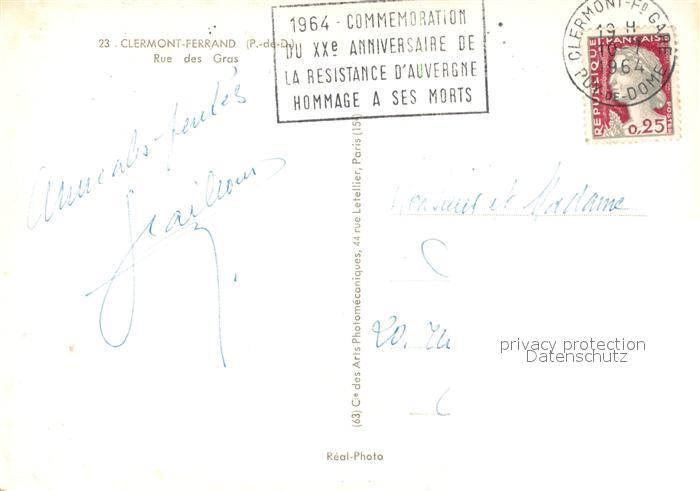 23 . CLERMONT-FERRAND (P.-de-D.)
Rue des Gras
1964 - COMMEMORATION
DU XXe ANNIVERSAIRE DE
LA RESISTANCE D'AUVERGNE
HOMMAGE A SES MORTS
CLERMONT-Fd GARE
19 H
1964
PUY-DE-DOME
REPUBLIQUE FRANÇAISE
POSTES
0,25
Amicales pensées
(63) Cie des Arts Photomécaniques, 44 rue Letellier, Paris (15e)
Monsieur et Madame
privacy protection
Datenschutz
Réal-Photo